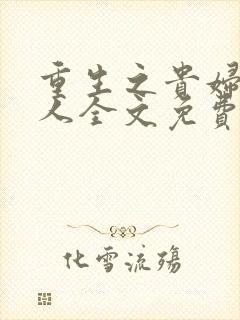 重生之貴婦
人全文免費
化雪流殤